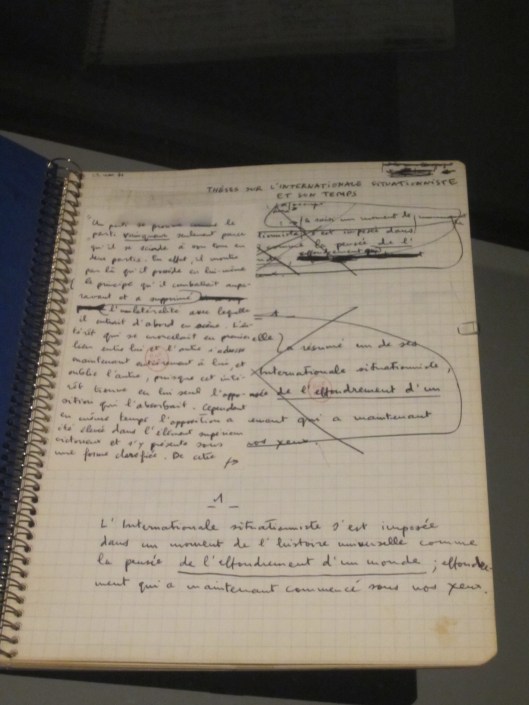 THÈSES SUR L'INTERNATIONALE SITUATIONNISTE
ET SON TEMPS
Un parti se prouve comme le
parti vainqueur seulement parce
qu'il se scinde à son tour en
deux partis. En effet, il montre
par là qu'il possède en lui-même
le principe qu'il combattait aupa-
ravant et a supprimé
l'unilatéralité avec laquelle
il entrait d'abord en scène. L'in-
térêt qui se morcelait en premier
lieu entre lui et l'autre s'adresse
maintenant entièrement à lui, et
oublie l'autre, puisque cet inté-
rêt trouve en lui seul l'oppo-
sition qui l'absorbait. Cependant
en même temps l'opposition a
été élevée dans l'élément supérieur
victorieux et s'y présente sous
une forme clarifiée. De cette
un moment
s'est imposée dans
comme la pensée de l'
effondrement
- 1 -
elle a résumé un de ses
Internationale situationniste,
de l'effondrement d'un
ement qui a maintenant
nos yeux.
- 1 -
L'Internationale situationniste s'est imposée
dans un moment de l'histoire universelle comme
la pensée de l'effondrement d'un monde ; effondre-
ment qui a maintenant commencé sous nos yeux.